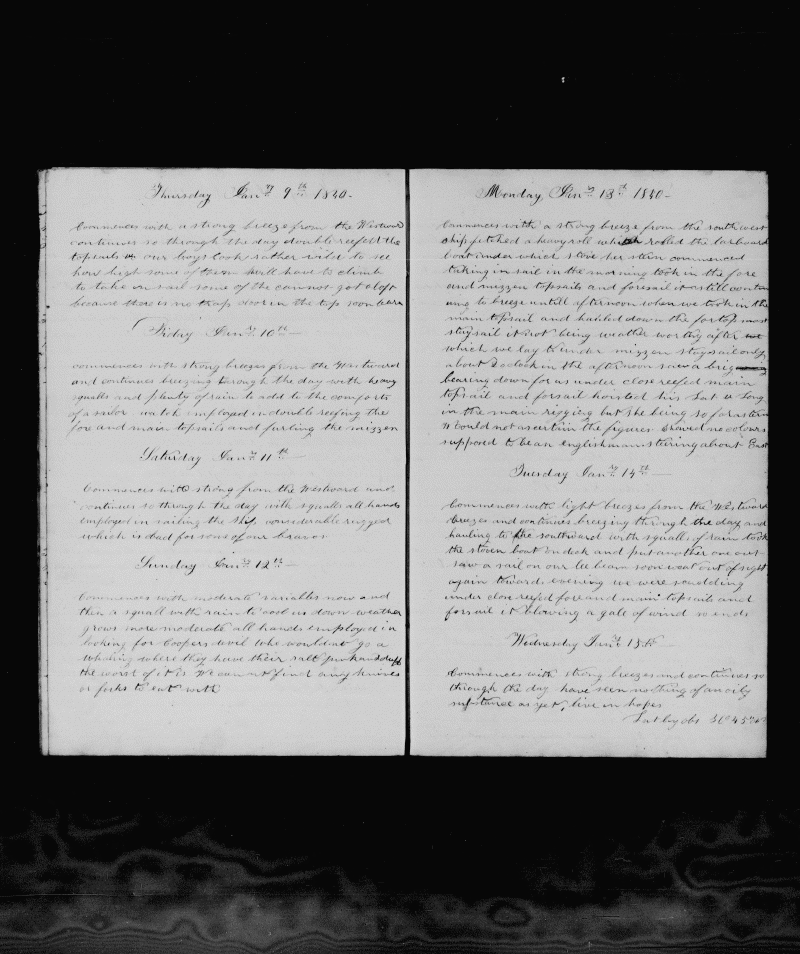 Thursday Jany 9th 1840-
Commences with a strong breeze from the Westward
continues so through the day double reefed the
topsails our boys look rather wild to see
how high some of them will have to climb
to take in sail some of the cannot get aloft
because there is no trap door in the top soon learn
Friday Jany 10th-
commences with strong breezes from the Westward
and continues breezing through the day with heavy
squalls and plenty of rain to add to the comforts
of a sailor watch employed in double reefing the
fore and main topsails and furling the mizzen
Saturday Jany 11th-
Commences with strong from the Westward and
continues so through the day with squalls all hands
employed in sailing the ship, considerable rugged
which is bad for some of our bravos
Sunday Jany 12th-
Commences with moderate variables now and
then a squall with rain to cool us down weather
grows more moderate all hands employed in
looking for Coopers devil who wouldnt go a
whaling where they have their salt pork and duff
the worst of it is We can not find any knives
or forks to eat with
Monday, Jany 13th 1840-
Commences with a strong breeze from the south west
ship fetched a heavy roll which rolled the larboard
boat under which stove her stern commenced
taking in sail in the morning took in the fore
and mizzen topsails and foresail it still contin
uing to breeze untill afternoon when we took in the
main topsail and hauled down the foretop mast
staysail it not being weather worthy after
which we lay to under mizzen staysail only,
about 2 oclock in the afternoon saw a brig
bearing down for us under close reefed main
topsail and forsail hoisted his Lat & Long
in the main rigging but she being so far astern
could not ascertain the figures showed no colours
supposed to be an englishman steering about East
Tuesday Jany 14th-
Commences with light breezes from the Westward
breezes and continues breezing through the day and
hauling to the southward with squalls of rain took
the stoven boat in deck and put another one out-
saw a sail on our lee beam soon went out of sight
again towards evening we were scudding
under close reefed fore and main topsails and
forsail it blowing a gale of wind so ends
Wednesday Jany 15th-
Commences with strong breezes and continues so
through the day have seen nothing of an oily
substance as yet, live in hopes
Lat by obs 36° 45"